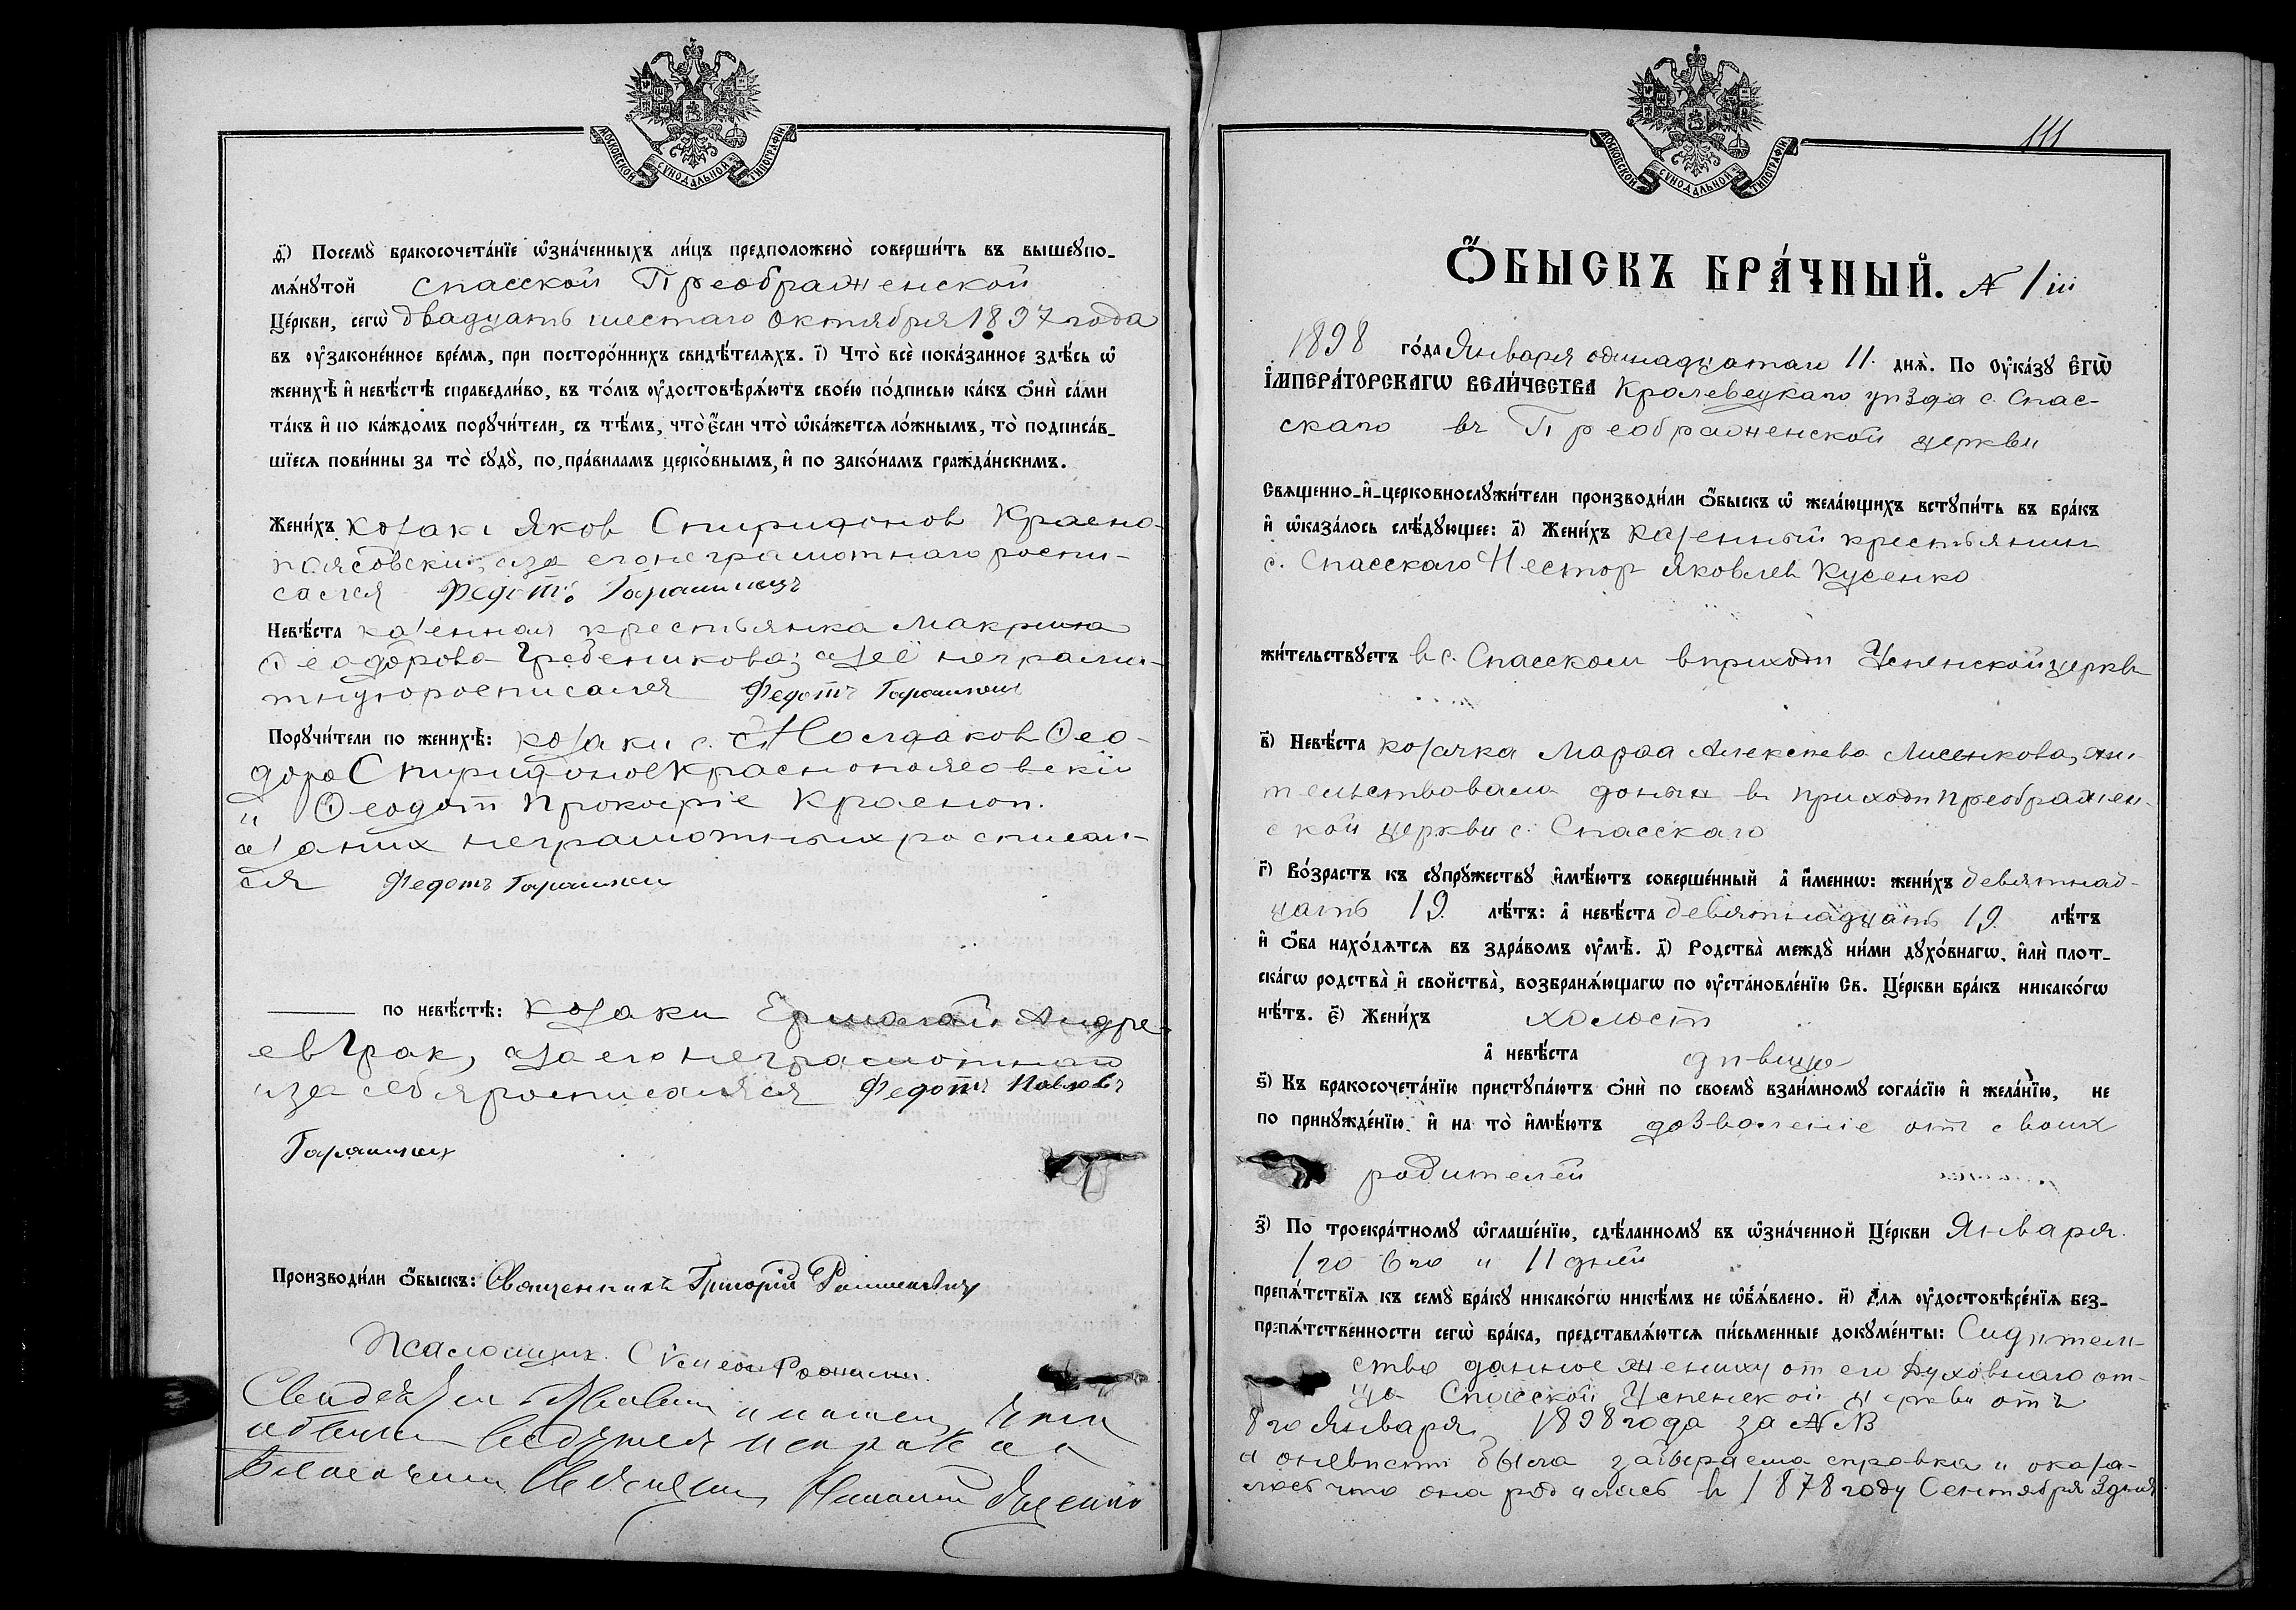 МОСКОВСКОЙ СУНОДАЛЬНОЙ ТИПОГРАФІИ
д҃) Посемꙋ̀ бракосочета́нїе ѡ҆зна́ченныхъ ли́цъ предположено̀ соверши́ть въ вышеꙋпо-
мѧ́нꙋтой Спасской Преображенской
Це́ркви, сегѡ̀ двадцать шестаго Октября 1897 года
въ ᲂу҆законе́нное вре́мѧ, при посторо́ннихъ свидѣ́телѧхъ. і҃) Что̀ всѐ пока́занное здѣ́сь ѡ҆
женихѣ̀ и҆ невѣ́стѣ справедли́во, въ то́мъ ᲂу҆достовѣрѧ́ютъ свое́ю по́дписью ка́къ ѻ҆нѝ са́ми
та́къ и҆ по ка́ждомъ порꙋчи́тели, съ тѣ́мъ, что̀ є҆́сли что̀ ѡ҆ка́жетсѧ ло́жнымъ, то̀ подписа́в-
шїесѧ пови́нны за то̀ сꙋдꙋ̀, по пра́виламъ церко́внымъ, и҆ по зако́намъ гражда́нскимъ.
Жени́хъ козак Яков Спиридонов Красно-
поясовскій, а за его неграмотнаго роспи-
сался Федотъ
Невѣ́ста казенная крестьянка Макрина
Ѳеодорова Гребеникова; а за её неграмо-
тную росписался Федотъ
Порꙋчи́тели по женихѣ̀: козаки с. Ѳео-
дора Спиридонов Краснопоясовскій
и Ѳеодот Прокофіе Красноп.
а за них неграмотных росписал-
ся Федотъ
по невѣ́стѣ: козаки Ермолай Андре-
ев Грак, а за его неграмотнаго
и за себя росписался Федотъ Павловъ
Производи́ли ѻ҆́быскъ: Священникъ Григорій
Псаломщик Симеон
111
МОСКОВСКОЙ СУНОДАЛЬНОЙ ТИПОГРАФІИ
Ѻ҆́БЫСКЪ БРА́ЧНЫЙ. № 1
1898 го́да Января одинадцатаго 11. днѧ̀. По ᲂу҆ка́зꙋ Є҆ГѠ̀
І҆МПЕРА́ТОРСКАГѠ ВЕЛИ́ЧЕСТВА Кролевецкаго уѣзда с. Спас-
скаго въ Преображенской церкви
Свѧщенно-и҆-церковнослꙋжи́тели производи́ли ѻ҆́быскъ ѡ҆ жела́ющихъ встꙋпи́ть въ бра́къ
и҆ ѡ҆каза́лось слѣ́дꙋющее: а҃) Жени́хъ казенный крестьянин
с. Спасскаго Нестор Яковлев Кусенко
жи́тельствꙋетъ в с. Спасском в приходѣ Успенской церкви
в҃) Невѣ́ста козачка Марфа Алексѣева Лисенкова, жи-
тельствовала донынѣ в приходѣ Преображен-
ской церкви с. Спасскаго
г҃) Во́зрастъ къ сꙋпрꙋ́жествꙋ и҆мѣ́ютъ соверше́нный а҆ и҆́меннѡ: жени́хъ девятнад-
цать 19 лѣ́тъ: а҆ невѣ́ста девятнадцать 19. лѣ́тъ
и҆ ѻ҆́ба нахо́дѧтсѧ въ здра́вомъ ᲂу҆мѣ̀. д҃) Родства̀ междꙋ̀ ни́ми дꙋхо́внагѡ, и҆лѝ плот-
ска́гѡ родства̀ и҆ сво́йства̀, возбранѧ́ющагѡ по ᲂу҆становле́нїю Св. Це́ркви бра́къ никако́гѡ
нѣ́тъ. є҃) Жени́хъ холост
а҆ невѣ́ста дѣвица
ѕ҃) Къ бракосочета́нїю пристꙋпа́ютъ ѻ҆нѝ по своемꙋ̀ взаи́мномꙋ согла́сїю и҆ жела́нїю, не
по принꙋжде́нїю и҆ на то̀ и҆мѣ́ютъ дозволеніе отъ своих
родителей
з҃) По троекра́тномꙋ ѡ҆глаше́нїю, сдѣ́ланномꙋ въ ѡ҆зна́ченной Це́ркви Января
1го 6го и 11 дней
препѧ́тствїѧ къ семꙋ̀ бра́кꙋ никако́гѡ никѣ́мъ не ѡ҆бъѧ́влено. и҃) Длѧ ᲂу҆достовѣре́нїѧ без-
препѧ́тственности сегѡ̀ бра́ка, представлѧ́ютсѧ пи́сьменные докꙋме́нты: Сидѣтель-
ство данное жениху от его духовнаго от-
ца Спасской Успенской церкви отъ
8го Января 1898 года за №
а о невѣсте была забыраема справка и оказа-
лось что она родилась в 1878 году Сентября 3 дня